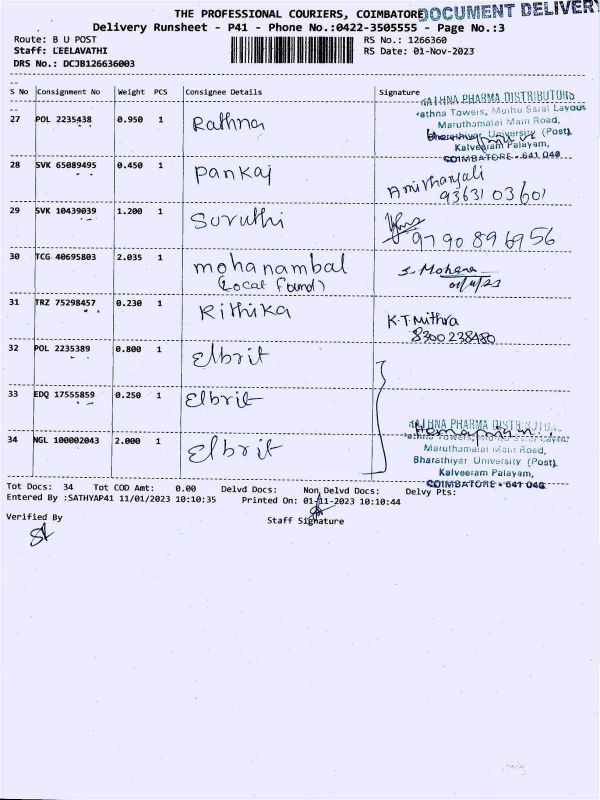 THE PROFESSIONAL COURIERS, COIMBATORE
DOCUMENT DELIVERY
Delivery Runsheet - P41 - Phone No.:0422-3505555 - Page No.:3
Route: B U POST
RS No.: 1266360
Staff: LEELAVATHI
RS Date: 01-Nov-2023
DRS No.: DCJB126636003
S No Consignment No Weight PCS Consignee Details Signature
27 POL 2235438 0.950 1 Rathna
RATHNA PHARMA DISTRIBUTORS
Rathna Towers, Muthu Ssial Layout
Maruthamalai Main Road,
Bharathiyar University (Post),
Kalveeram Palayam,
COIMBATORE - 641 046
28 SVK 65089495 0.450 1 Pankaj
Amirthanjali
93631 03601
29 SVK 10439039 1.200 1 Suruthi
9790896956
30 TCG 40695803 2.035 1 mohanambal
(Local found)
S. Mohana
01/11/23
31 TRZ 75298457 0.230 1 Rithika
K.T. Mithra
8300238480
32 POL 2235389 0.800 1 Elbrit
33 EDQ 17555859 0.250 1 Elbrit
34 NGL 100002043 2.000 1 Elbrit
RATHNA PHARMA DISTRIBUTORS
Rathna Towers, Layout
Maruthamalai Main Road,
Bharathiyar University (Post),
Kalveeram Palayam,
COIMBATORE - 641 046
Tot Docs: 34 Tot COD Amt: 0.00 Delvd Docs: Non Delvd Docs: Delvy Pts:
Entered By :SATHYAP41 11/01/2023 10:10:35 Printed On: 01-11-2023 10:10:44
Verified By
Staff Signature